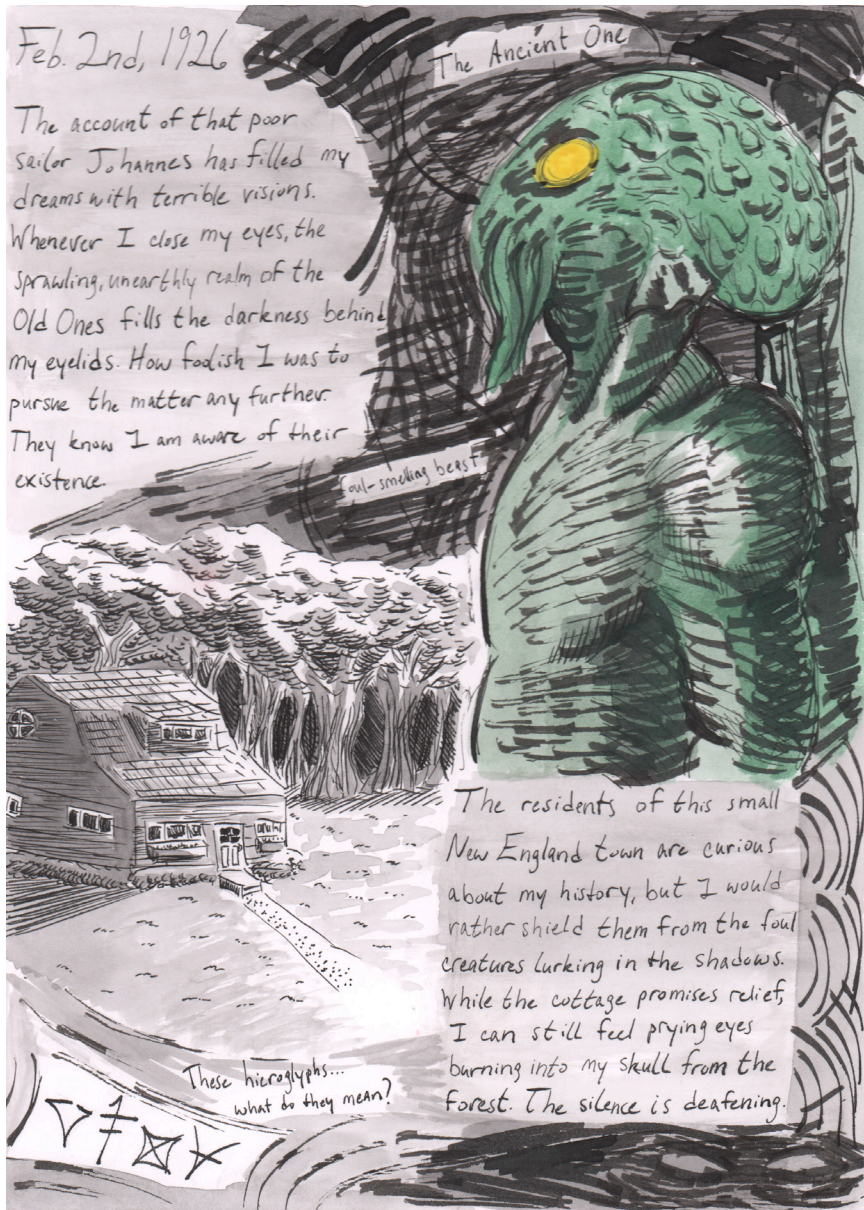 Feb. 2nd, 1926
The account of that poor
sailor Johannes has filled my
dreams with terrible visions.
Whenever I close my eyes, the
sprawling, unearthly realm of the
Old Ones fills the darkness behind
my eyelids. How foolish I was to
pursue the matter any further.
They know I am aware of their
existence.
The Ancient One
foul-smelling beast
The residents of this small
New England town are curious
about my history, but I would
rather shield them from the foul
creatures lurking in the shadows.
While the cottage promises relief,
I can still feel prying eyes
burning into my skull from the
forest. The silence is deafening.
These hieroglyphs...
what do they mean?